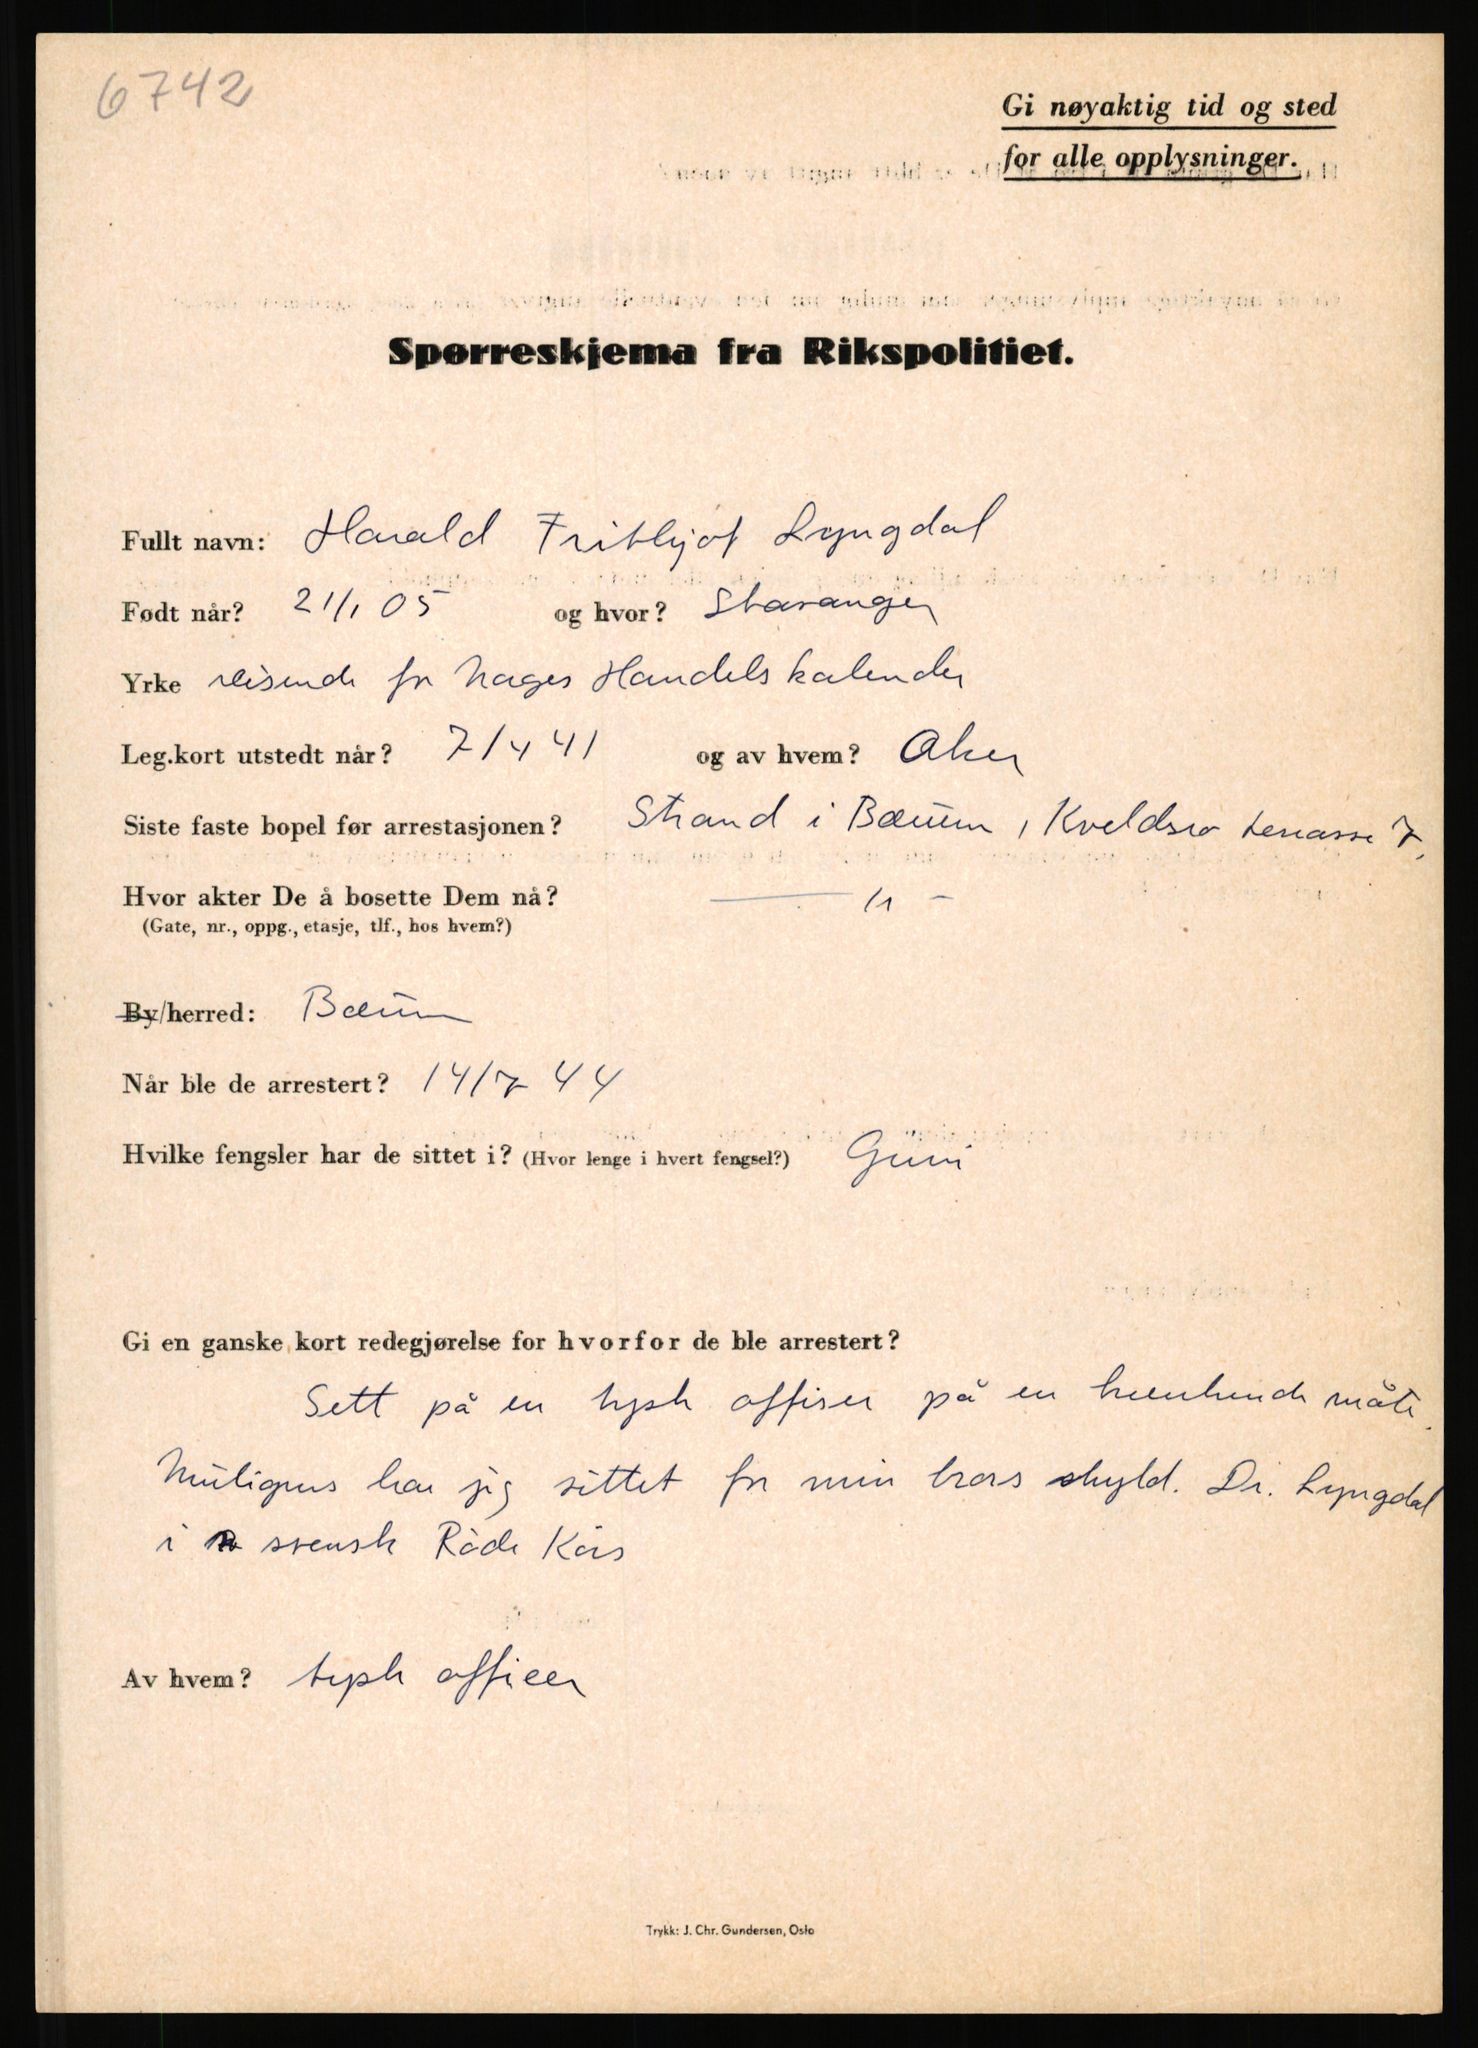 6742
Gi nøyaktig tid og sted
for alle opplysninger.
Spørreskjema fra Rikspolitiet.
Fullt navn: Harald Frithjof Lyngdal
Født når? 21/1 05 og hvor? Stavanger
Yrke reisende for Norges Handelskalender
Leg.kort utstedt når? 7/4 41 og av hvem? Aker
Siste faste bopel før arrestasjonen? Strand i Bærum, Kveldsro terrasse 7.
Hvor akter De å bosette Dem nå? — " —
(Gate, nr., oppg., etasje, tlf., hos hvem?)
By/herred: Bærum
Når ble de arrestert? 14/7 44
Hvilke fengsler har de sittet i? (Hvor lenge i hvert fengsel?) Grini
Gi en ganske kort redegjørelse for hvorfor de ble arrestert?
Sett på en tysk offiser på en krenkende måte.
Muligens har jeg sittet for min brors skyld. Dr. Lyngdal
i svensk Røde Kors
Av hvem? tysk officer
Trykk: J. Chr. Gundersen, Oslo